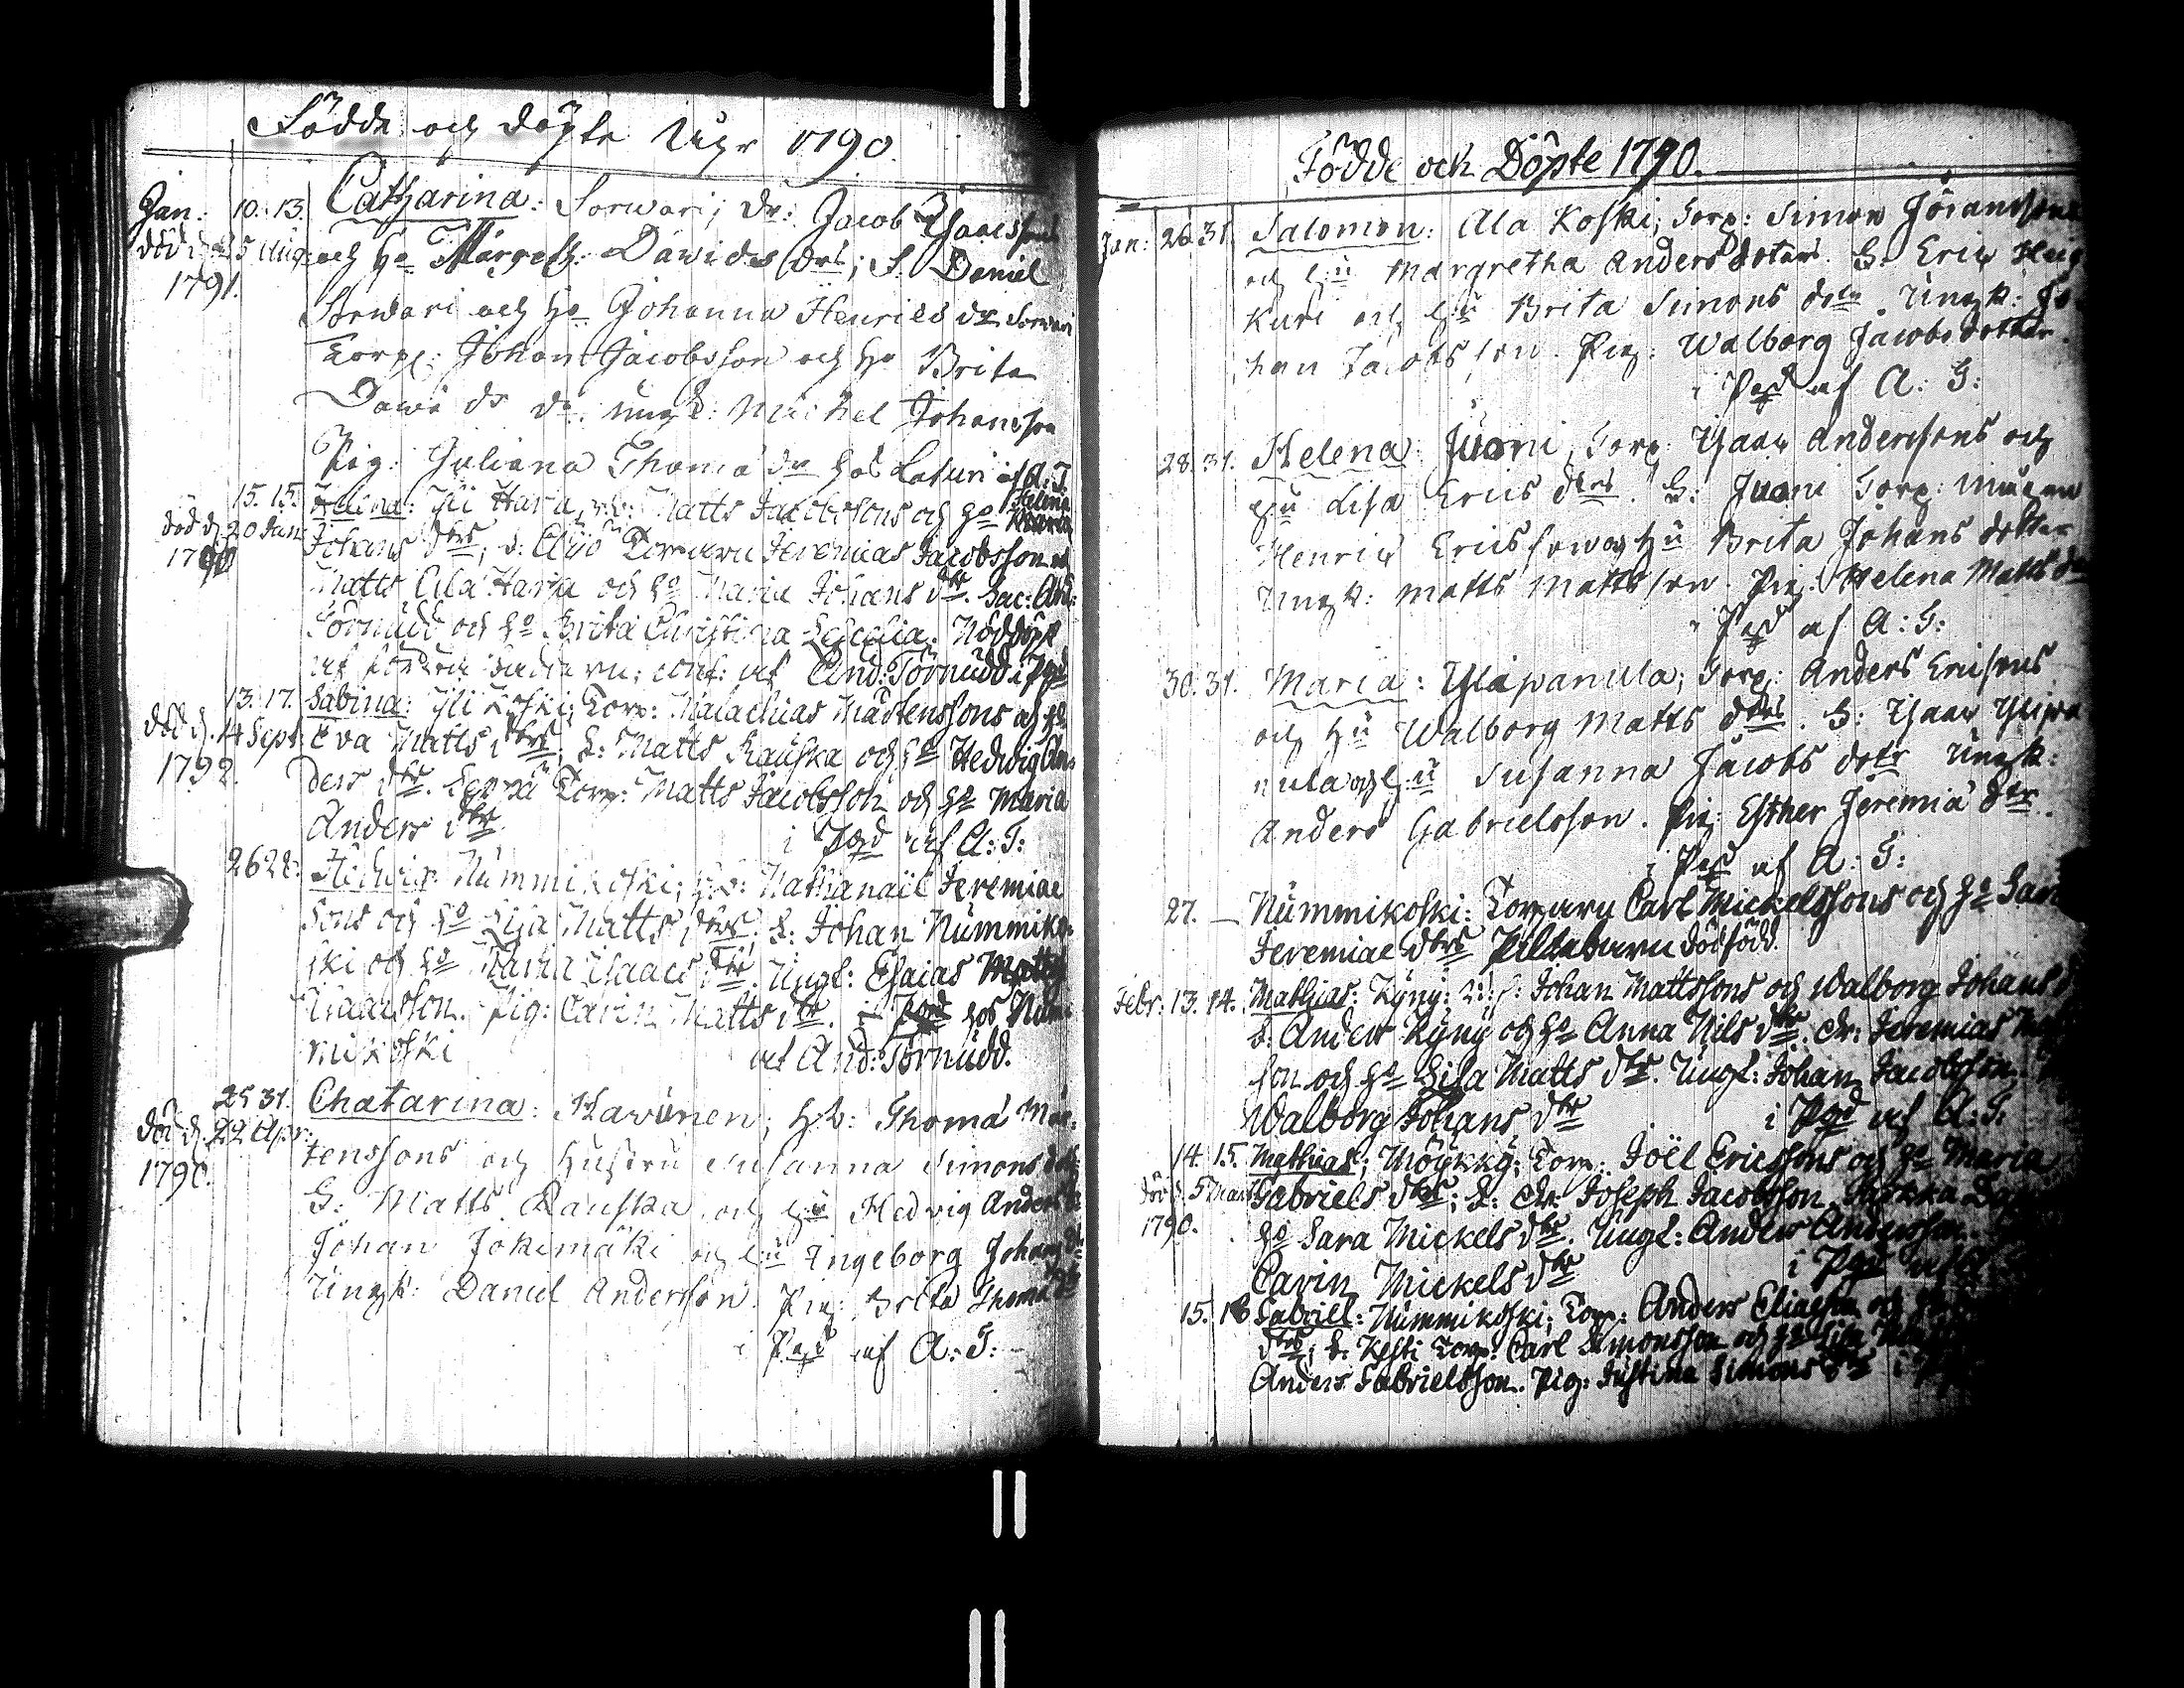 Födde och döpte Åhr 1790.
Jan: 10. 13. Catharina: Sorwari; Dr: Jacob Isaacssons
död d. 25 Aug: och ho Margeth: Dawids dotrs; S. Daniel
1791.
Sorwari och ho Johanna Henrics dr Sorwari
Torp: Johan Jacobsson och ho Brita
Dawids dr. ungk: Michel Johansson
Pig: Juliana Thomæ dr hos Laturi af A. T.
15. 15. Helena: Yli Harja, Matts Jacobssons och ho Helena Maria
död d. 20 Jan: Johans dtrs; Äijö Torparen Jeremias Jacobsson
1790
Matts Ala Harja och ho Maria Johans dtr. Sac: And:
Törnudd och ho Brita Christina Nöddöpt
af And: Törnudd. i Pgd
13. 17. Sabina: Yli Koski; Torp: Malachias Mårtenssons och ho
död d. 14 Sept. Eva Matts dtrs. S: Matts Rauska och ho Hedwig An-
1792.
ders dtr. Torp: Matts Jacobsson och ho Maria
Anders dtr. i Pgd af A: T:
26 28: Hedwig: Nummikoski; Nathanaël Jeremiae
Sons och ho Lisa Matts dtrs. S: Johan Nummiko-
ski och ho Isaacs dtr. Ungk: Esaias
Isaacsson. Pig: Carin Matts dtr. i Pgd hos Num-
mikoski af And: Törnudd.
25 31. Chatarina: Kavonen; Hb: Thomæ Mår-
död d. 22 Apr: tenssons och Hustru Susanna Simons dotr
1790.
S: Matts Rauska och hu Hedvig Anders dr
Johan Jokimäki och hu Ingeborg Johans dr
Ungk: Daniel Andersson. Pig: Brita Thomæ dtr
i Pgd af A: T:
Födde och Döpte 1790.
Jan: 26. 31. Salomon: Ala Koski; Torp: Simon Jöranssons
och hu Margretha Anders dotars. S: Eric
Kuri och hu Brita Simons dotr Ungk: Jo-
han Jacobsson. Pig: Walborg Jacobs dotter.
i Pgd af A: T:
28. 31. Helena: Juoni, Torp: Isaac Anderssons och
hu Lisa Erics dtrs. S: Juoni Torp:
Henric Ericsson och hu Brita Johans dotter
Ungk: Matts Mattsson. Pig: Helena Matts dr
i Pgd af A: T:
30. 31. Maria: Yliapanula; Torp: Anders Ericsons
och hu Walborg Matts dtrs. S: Isaac Ylipa
nula och hu Susanna Jacobs dotr Ungk:
Anders Gabrielsson. Pig: Esther Jeremiæ dtr.
i Pgd af A: T:
27. — Nummikoski: Torparen Carl Mickelssons och ho
Jeremiae dtrs Piltebarn dödfödd.
Febr: 13. 14. Mathias: Kyny: Johan Mattssons och Walborg Johans
S: Anders Kyny och ho Anna Nils dtr. Dr: Jeremias
son och ho Lisa Matts dtr. Ungk: Johan Jacobsson
Walborg Johans dtr i Pgd af A: T:
14. 15. Mathias; Möykky; Torp: Joël Ericssons och ho Maria
död d. 5 Mart Gabriels dtrs; S: Dr: Joseph Jacobsson
1790. ho Sara Mickels dtr. Ungk: Anders Andersson
Carin Mickels dtr i Pgd af
15. 18 Gabriel: Nummikoski; Torp: Anders Eliaeson och
dtrs; S: Kesti Torp: Carl Simonsson och ho Lisa
Anders Gabrielsson. Pig: Justina Simons dtr i